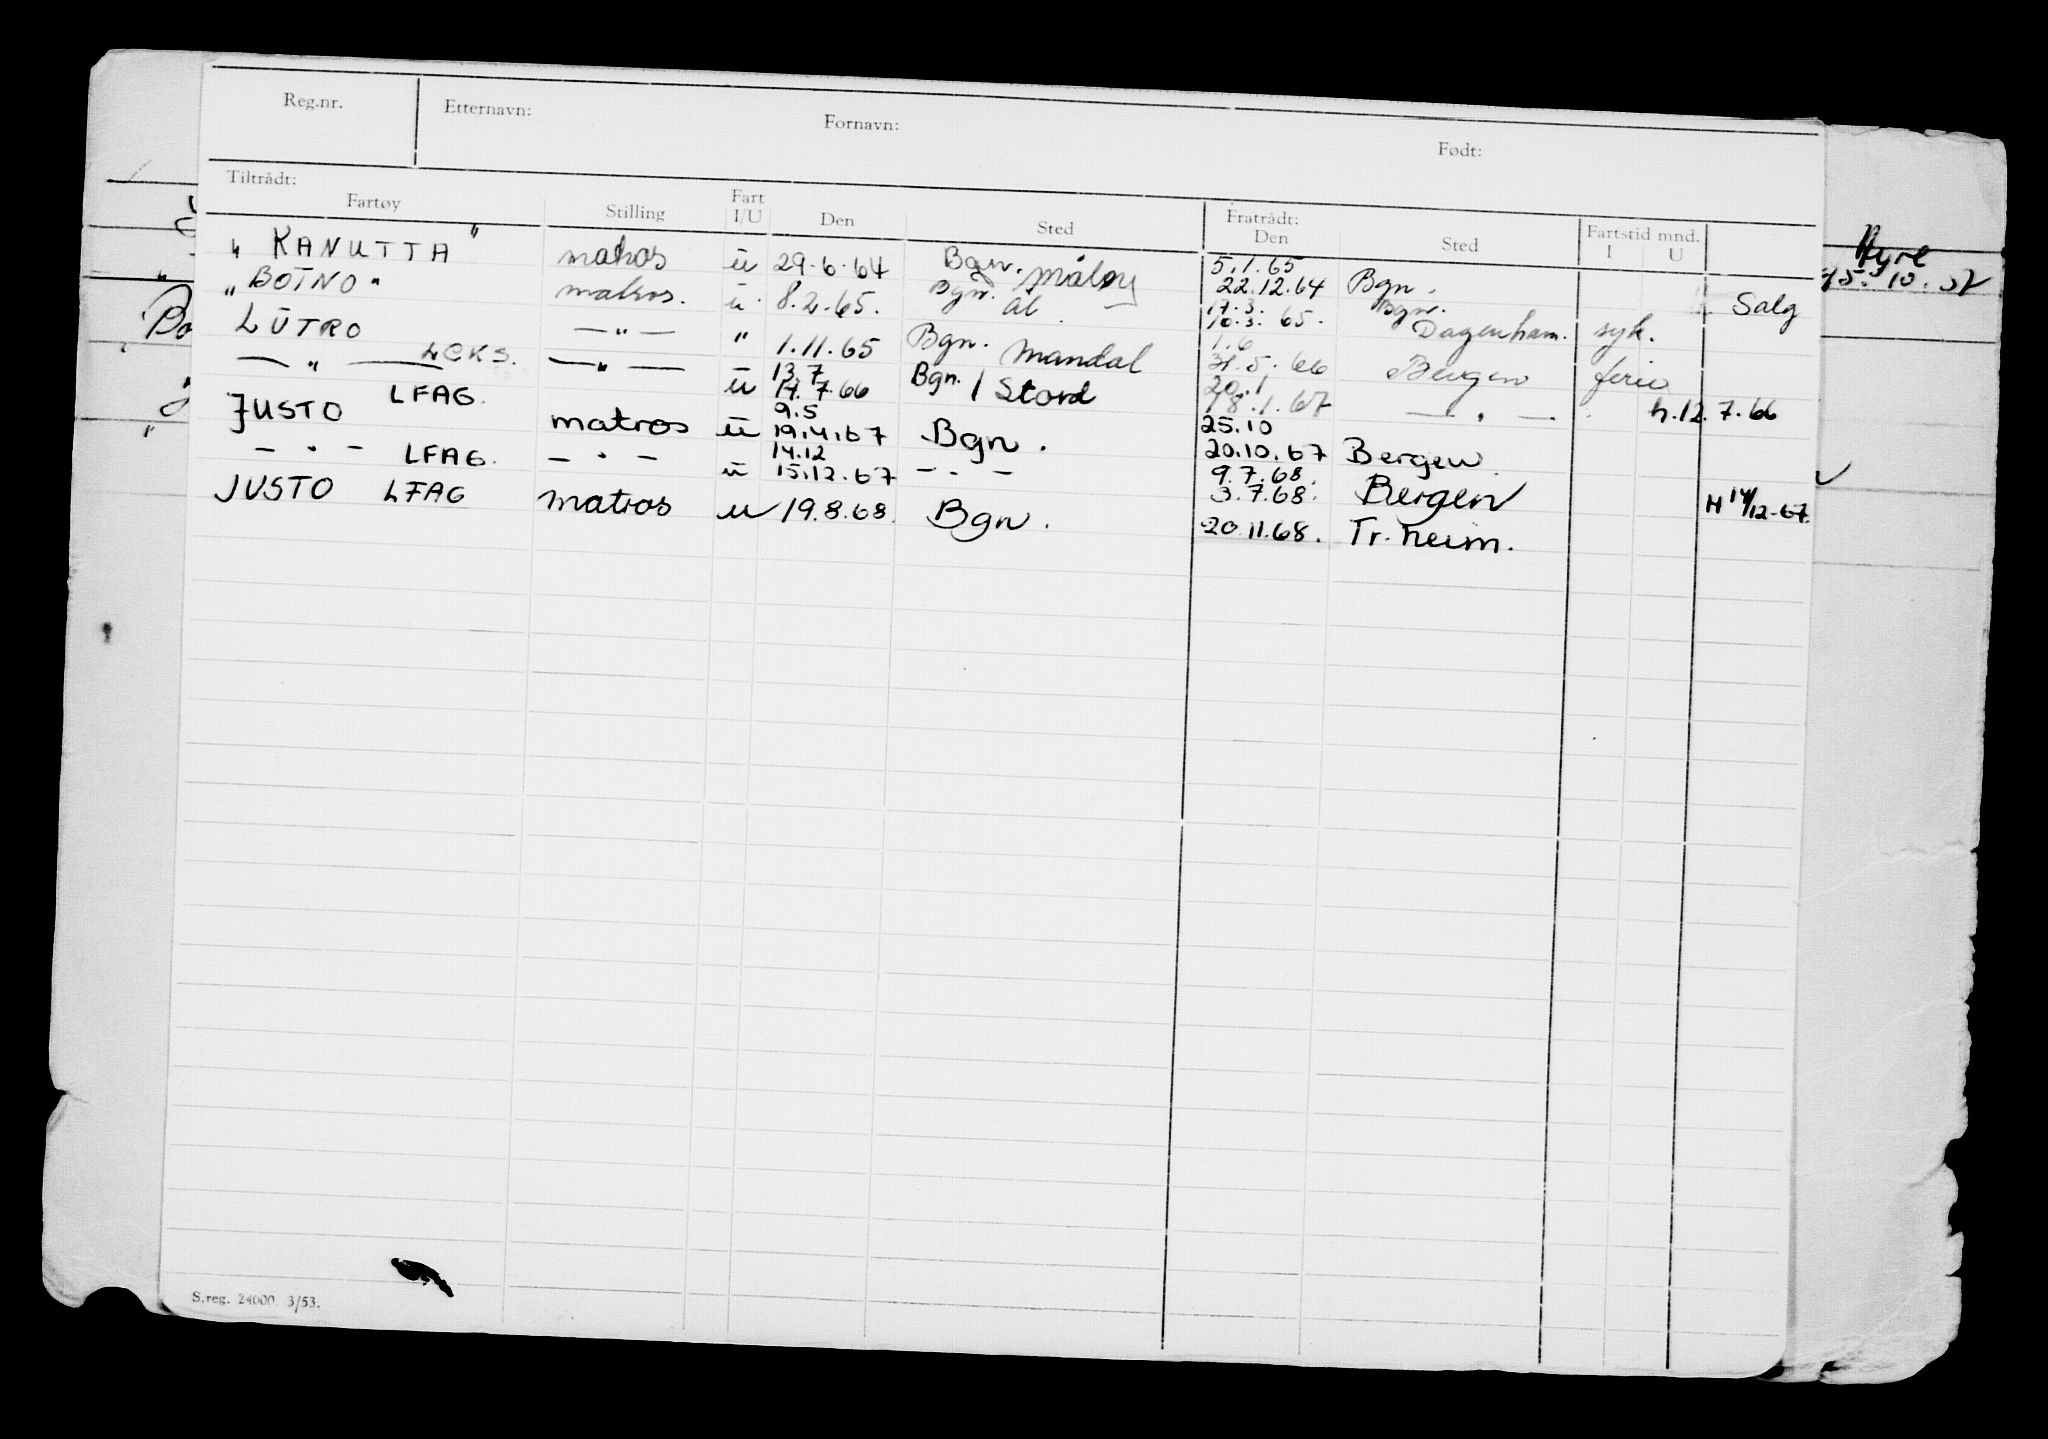 Reg.nr. Etternavn: Fornavn: Født:
Tiltrådt: Fratrådt: Fartstid mnd.
Fartøy Stilling Fart I/U Den Sted Den Sted I U
5.1.65
"KANUTTA" matros u 29.6.64 Bgn. Måløy 22.12.64 Bgn. Salg
17.3.
"BOTNO" matros. u. 8.2.65. Bgn. Ål 16.3. 65. Bgn. Dagenham. syk.
1.6
LUTRO — " — " 1.11.65 Bgn. Mandal 31.5.66 Bergen ferie
13.7 20.1
— " — LCKS. — " — u 14.7.66 Bgn. / Stord 18.1.67 — " — h.12.7.66
9.5 25.10
JUSTO LFAG. matros u 19.4.67 Bgn. 20.10.67 Bergen
14.12 9.7.68.
— " — LFAG. — " — u 15.12.67 — " — 3.7.68. Bergen H 14/12-67.
JUSTO LFAG matros u 19.8.68. Bgn. 20.11.68. Tr.heim.
Hyre
15.10.57
Bo
S.reg. 24000. 3/53.